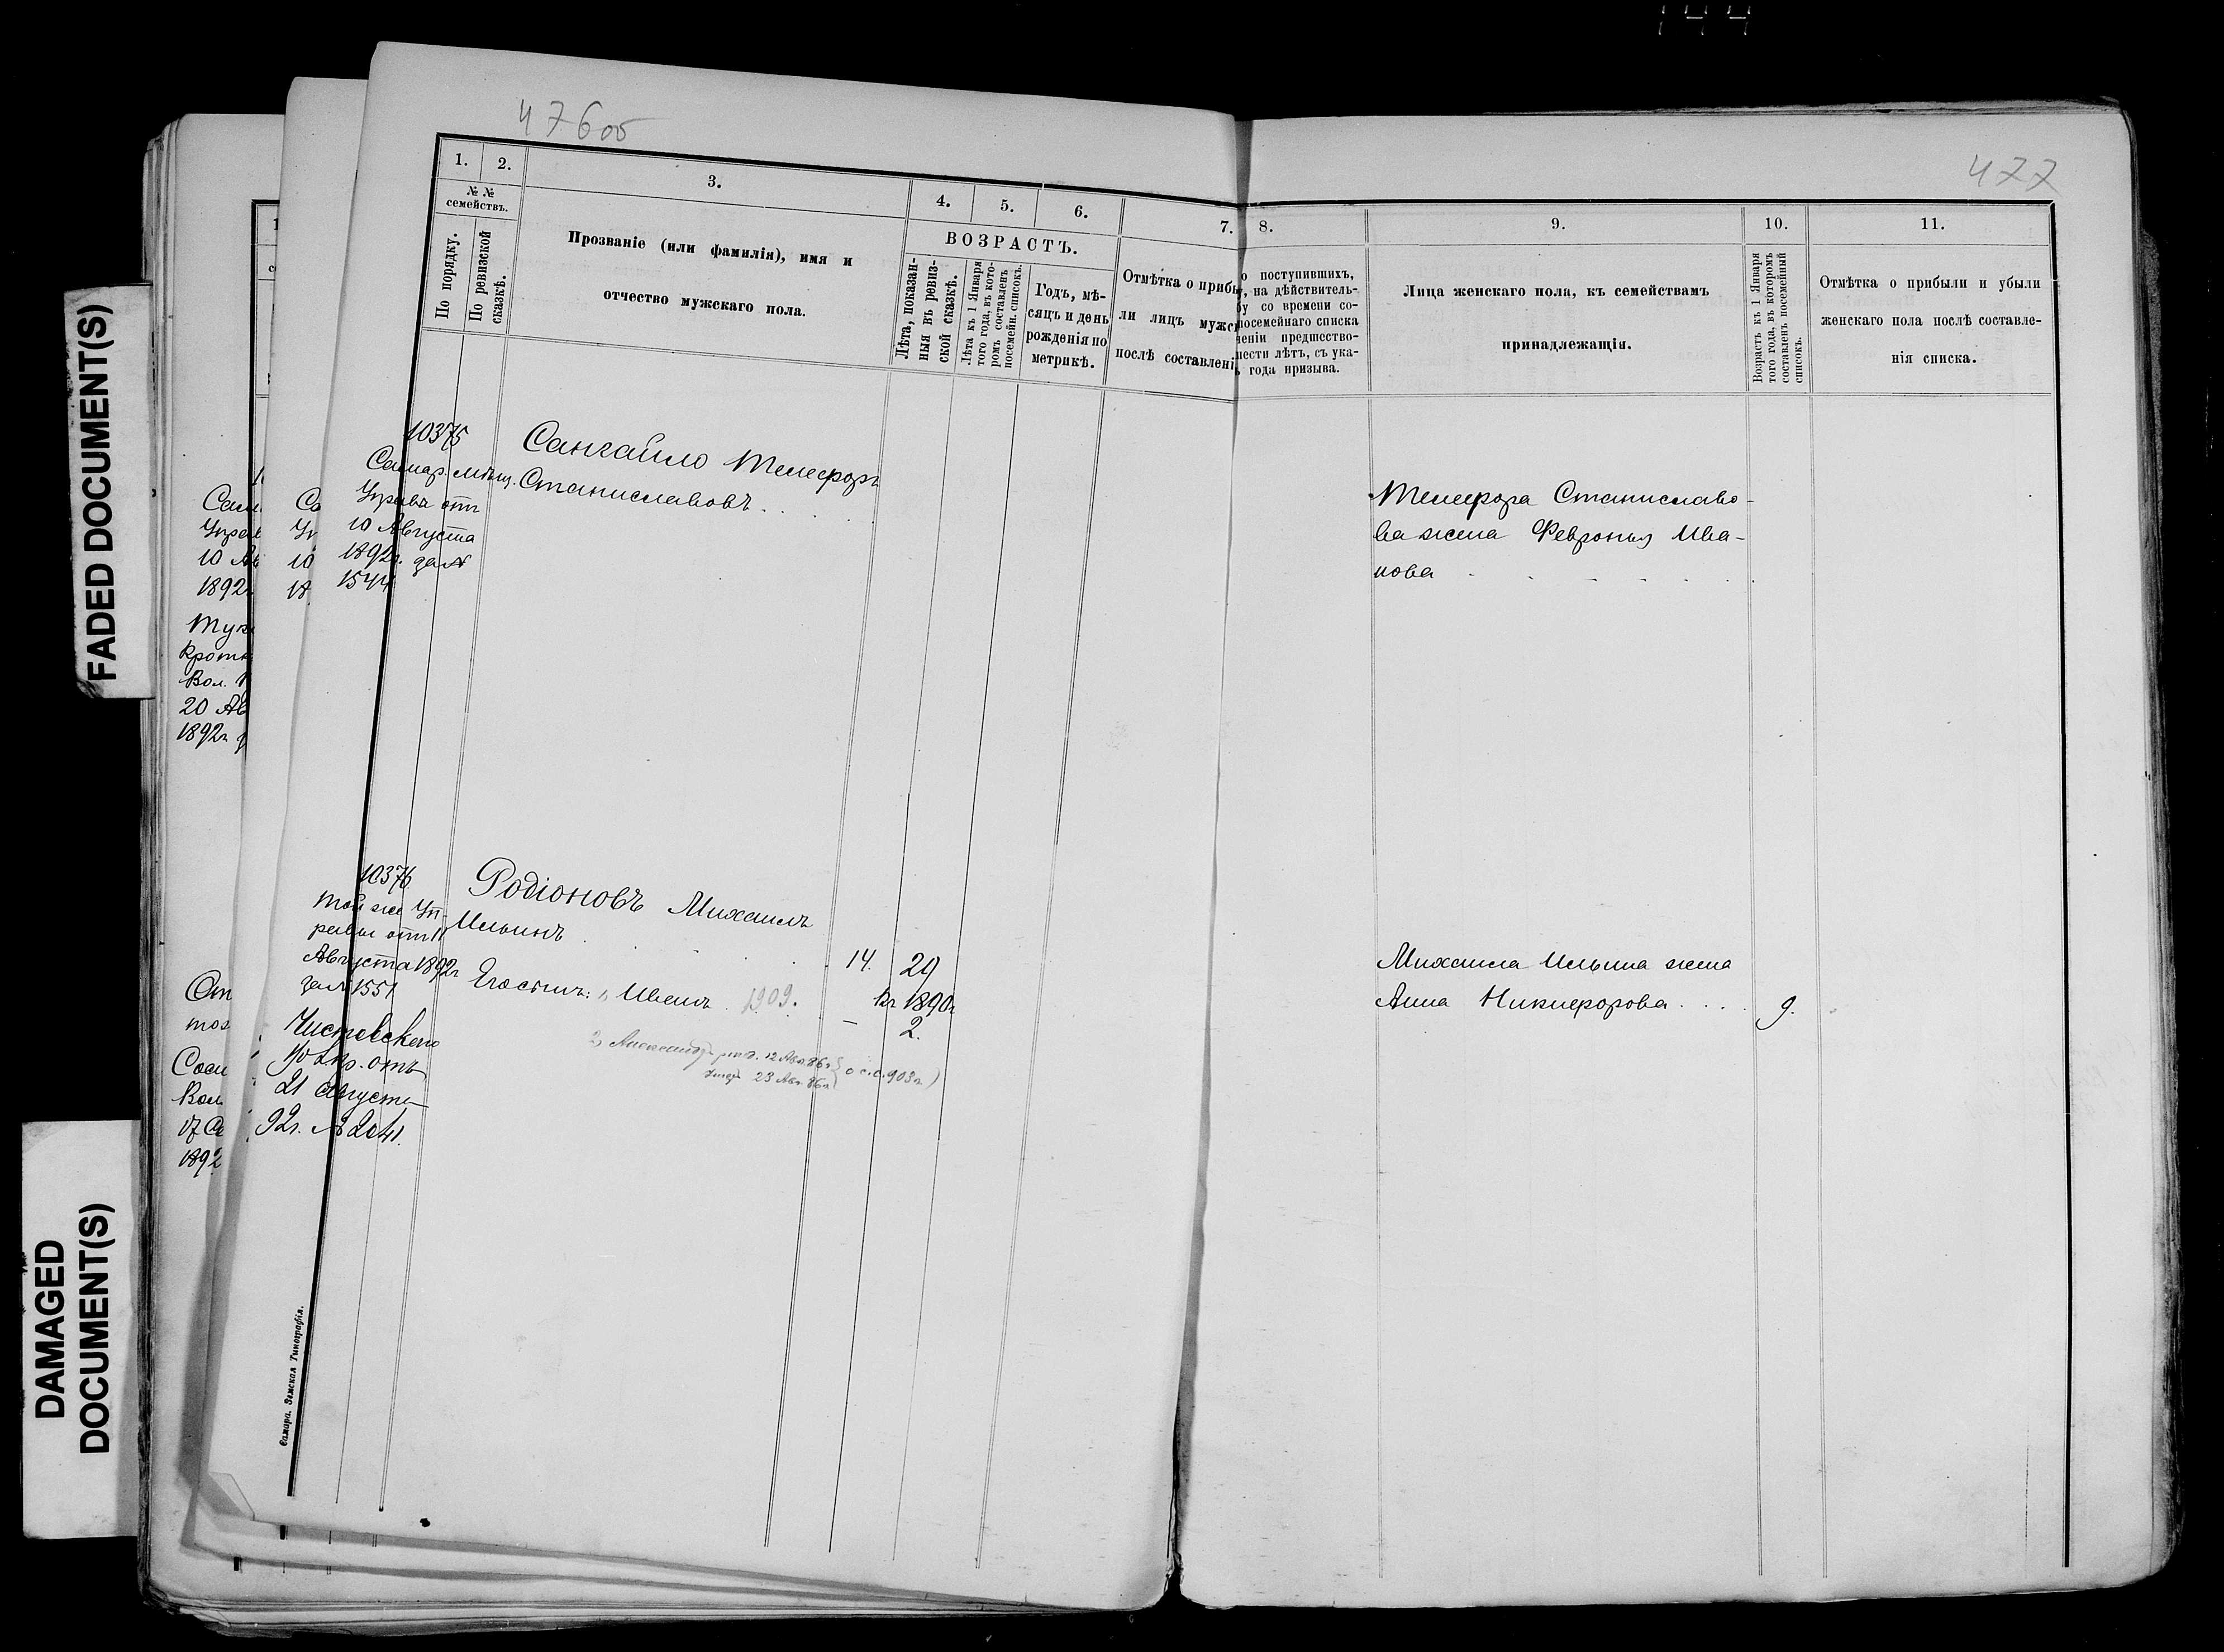 144
FADED DOCUMENT(S)
DAMAGED
DOCUMENT(S)
476об
1.
2.
3.
4.
5.
6.
7.
№ №
семействъ.
По порядку.
По ревизской
сказкѣ.
Прозваніе (или фамилія), имя и
отчество мужскаго пола.
ВОЗРАСТЪ.
Лѣта, показан-
ныя въ ревиз-
ской сказкѣ.
Лѣта къ 1 Января
того года, въ кото-
ромъ составленъ
посемейн. списокъ.
Годъ, мѣ-
сяцъ и день
рожденія по
метрикѣ.
Отмѣтка о прибы
ли лицъ мужс
послѣ составлені
10375
Самар. мѣщ.
Управы отъ
10 Августа
1892г. за №
1544
Сангайло Телесфоръ
Станиславовъ
10376
той же Уп-
равы отъ 11
Августа 1892г
за № 1551
Чистовского
Вол. пр. отъ
21 Августа
92г. № 2041.
Родіоновъ Михаилъ
Ильинъ
14.
29
Его сынъ: 1, Иванъ 1909.
1890г
—
2.
2, Александръ род. 12 Авг. 86г
умеръ 23 Авг. 86г
о с.с. 903г)
Самара. Земская Типографія.
Сам
Управ
10 Ав
1892г
Вол.
20 Ав
1892г
17 Се
1892
477
8.
9.
10.
11.
о поступившихъ,
, на дѣйствитель-
бу со времени со-
посемейнаго списка
неніи предшество-
шести лѣтъ, съ ука-
ъ года призыва.
Лица женскаго пола, къ семействамъ
принадлежащія.
Возрастъ къ 1 Января
того года, въ которомъ
составленъ посемейный
списокъ.
Отмѣтка о прибыли и убыли
женскаго пола послѣ составле-
нія списка.
Телесфора Станиславо-
ва жена Февронья Ива-
нова
Михаила Ильина жена
Анна Никифорова
9.